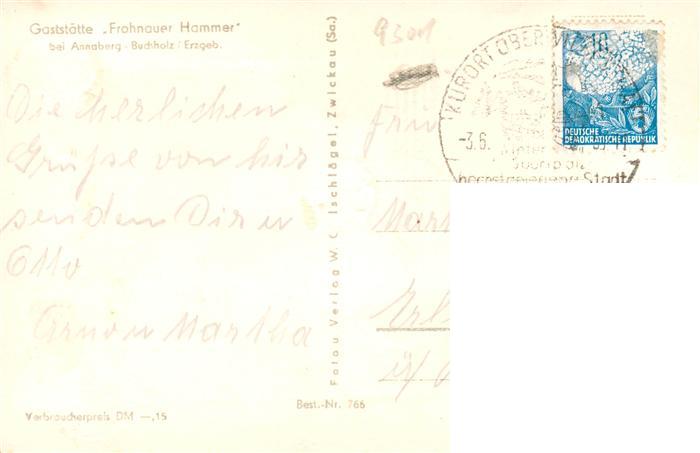 Gaststätte „Frohnauer Hammer"
bei Annaberg - Buchholz / Erzgeb.
Die herlichen
Grüße von hir
senden Dir u
Otto
Arno u Martha
Verbraucherpreis DM —,15
Best.-Nr. 766
Fotou Verlag W. C Ischlägel, Zwickau (Sa.)
9301
KURORT OBERWIESENTHAL
-3.6.
höchstgelegene Stadt
10
DEUTSCHE
DEMOKRATISCHE REPUBLIK